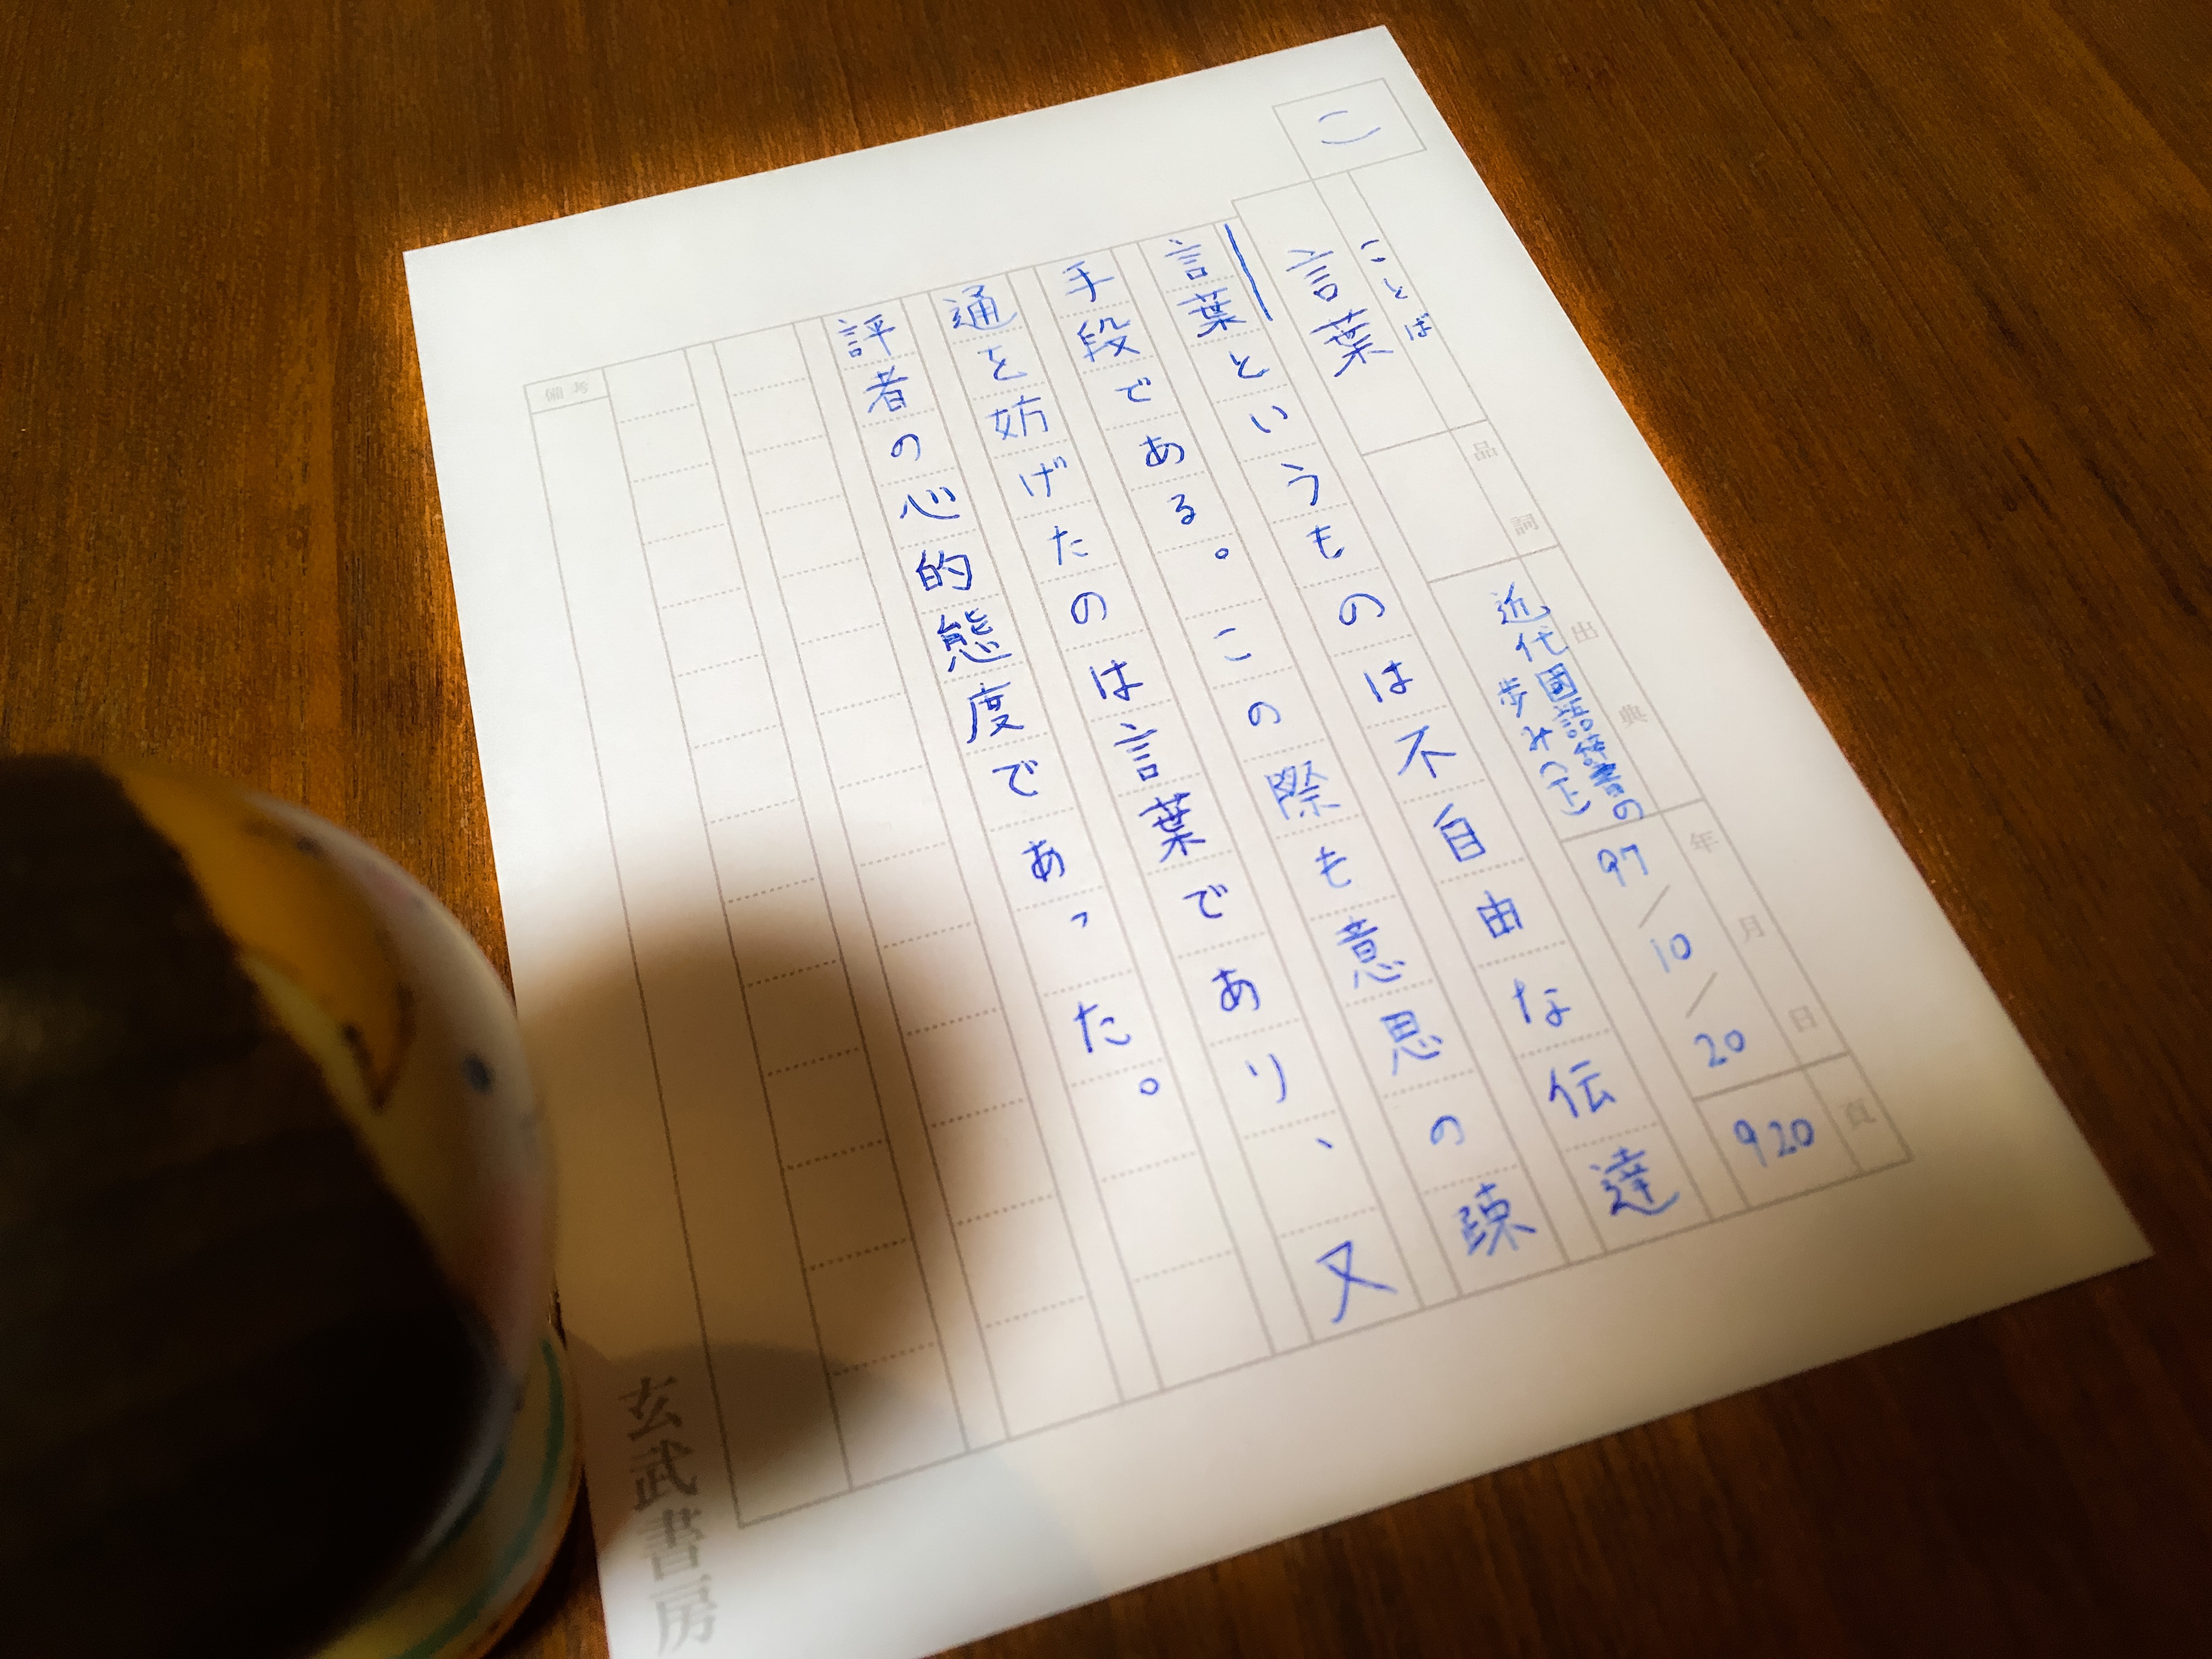 こ
ことば
言葉
品詞
出典
近代国語辞書の
歩み(下)
年月日
97/10/20
頁
920
言葉というものは不自由な伝達
手段である。この際も意思の疎
通を妨げたのは言葉であり、又
評者の心的態度であった。
備考
玄武書房